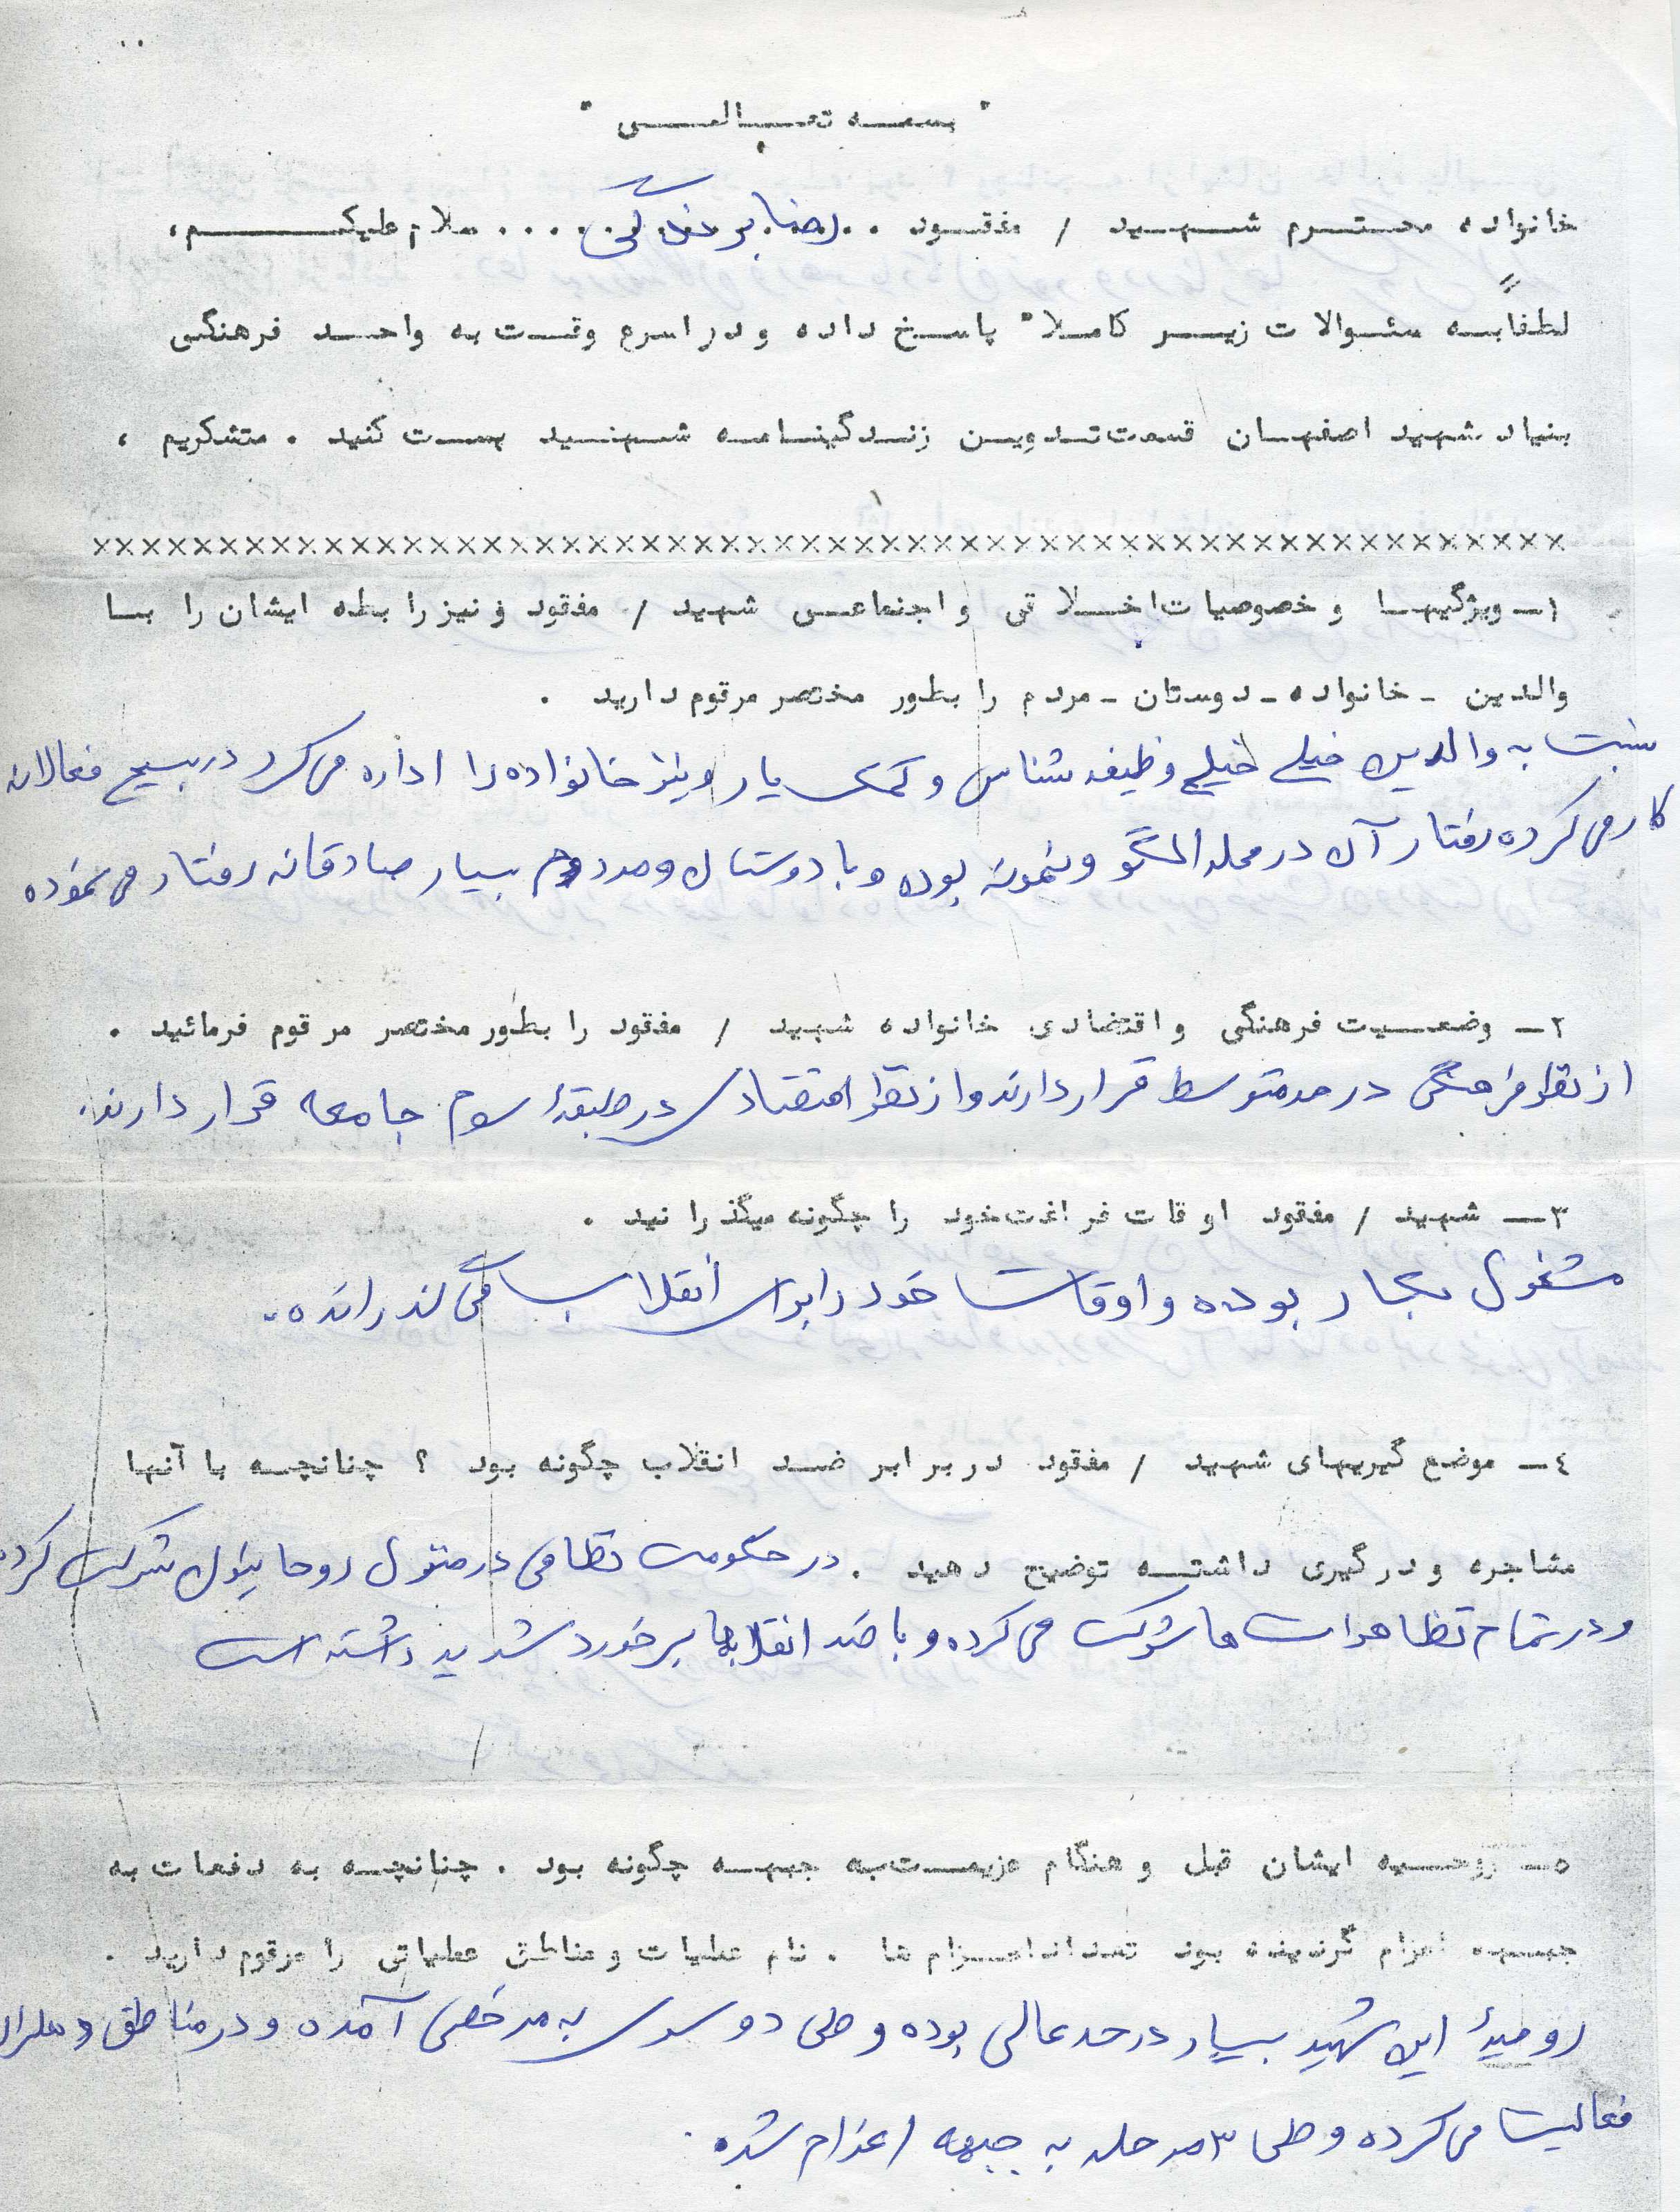 " بسمه تعالی "
خانواده محترم شهید / مفقود .. رضا بر خندگی .... سلام علیکم،
لطفاً به سئوالات زیر کاملا" پاسخ داده و در اسرع وقت به واحد فرهنگی
بنیاد شهید اصفهان قسمت تدوین زندگینامه شهید پست کنید . متشکریم ،
××××××××××××××××××××××××××××××××××××××××××××××××××××××××
۱- ویژگیها و خصوصیات اخلاقی و اجتماعی شهید / مفقود و نیز رابطه ایشان را با
والدین - خانواده - دوستان - مردم را بطور مختصر مرقوم دارید .
نسبت به والدین خیلی خیلی وظیفه شناس و کمک یار و نیز خانواده را اداره می کرد در بسیج فعالانه
کار می کرده رفتار آن در محله الگو و نمونه بوده و با دوستان و مردم بسیار صادقانه رفتار می نموده
۲- وضعیت فرهنگی و اقتصادی خانواده شهید / مفقود را بطور مختصر مرقوم فرمائید .
از نظر فرهنگی در حد متوسط قرار دارند و از نظر اقتصادی در طبقهٔ سوم جامعه قرار دارند.
۳- شهید / مفقود اوقات فراغت خود را چگونه میگذرانید .
مشغول بکار بوده و اوقات خود را برای انقلاب می گذرانده.
٤- موضع گیریهای شهید / مفقود در برابر ضد انقلاب چگونه بود ؟ چنانچه با آنها
مشاجره و درگیری داشته توضیح دهید . در حکومت نظامی در منزل روحانیون شرکت کرده
و در تمام تظاهرات ها شرکت می کرده و با ضد انقلابها برخورد شدید داشته است
۵- روحیه ایشان قبل و هنگام عزیمت به جبهه چگونه بود . چنانچه به دفعات به
جبهه اعزام گردیده بود تعداد اعزام ها . نام عملیات و مناطق عملیاتی را مرقوم دارید .
روحیهٔ این شهید بسیار در حد عالی بوده و طی دو سری به مرخصی آمده و در مناطق دهلران
فعالیت می کرده و طی ۳ مرحله به جبهه اعزام شده.